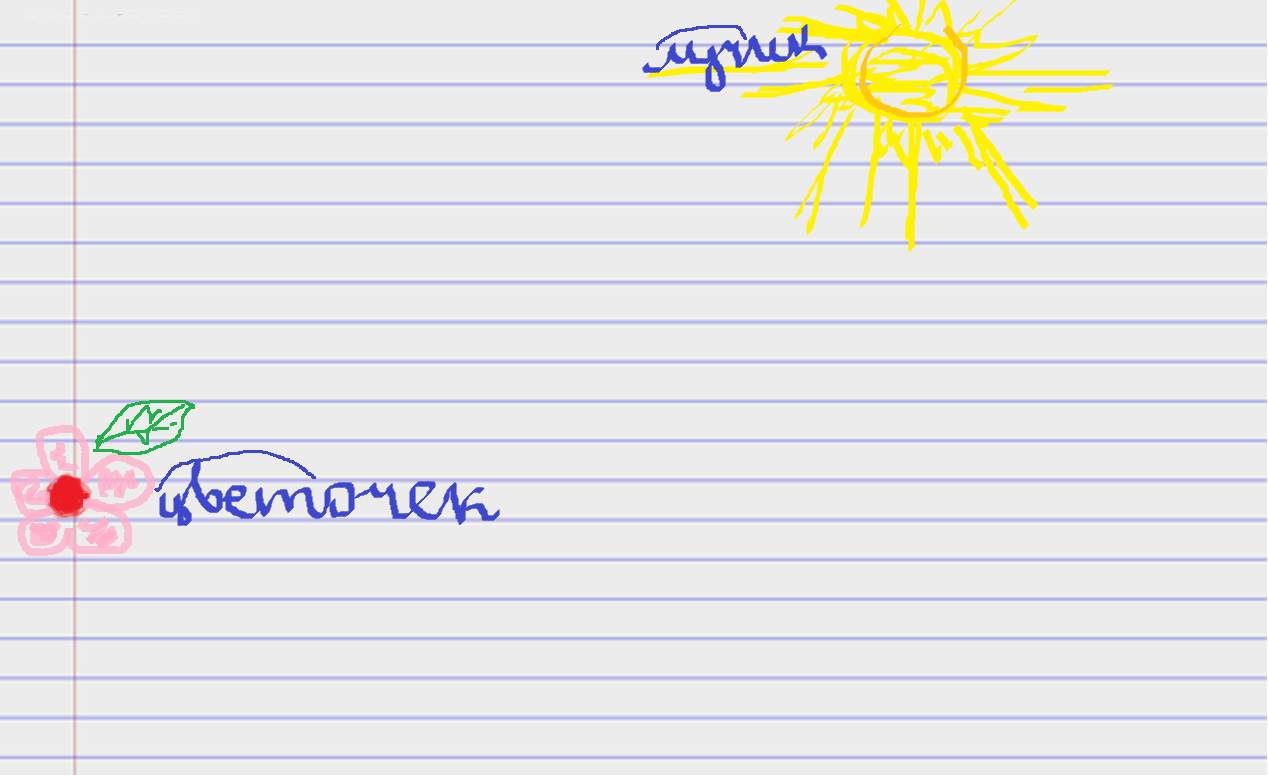 лучик
цветочек